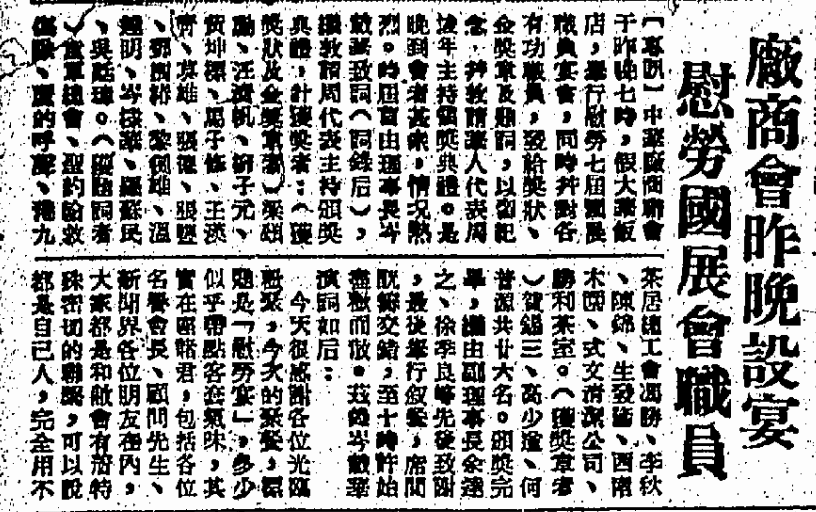 廠商會昨晚設宴
慰勞國展會職員
【專訊】中華廠商聯會
于昨晚七時，假大華飯
店，舉行慰勞七屆國展
職員宴會，同時并對各
有功職員，發給獎狀、
金獎章及頌詞，以留紀
念，并敦請華人代表周
埈年主持頒獎典禮。是
晚到會者甚衆，情况熱
烈。時屆首由理事長岑
載華致詞（詞錄后），
繼敦請周代表主持頒獎
典禮，計獲獎者：（獲
獎狀及金獎章者）梁
勵、汪 帆、 子元、
黃坤 、馬子修、王
齊、 英雄、張 、張
、 、黎 雄、溫
明、岑 華、羅蘇民
、吳 。（獲 詞者
） 軍總會、聖約翰救
傷隊、 的呼聲、港九
茶居總工會馮勝、李秋
、陳錦、生發 、西南
木 、式文清潔公司、
勝利茶室。（獲獎章者
）賀錫三、高少 、何
普源共廿大名。頒獎完
畢，繼由副理事長余達
之、徐季良等先發致謝
，最後舉行叙餐，席間
觥籌交錯，至十時許始
盡歡而散。茲錄岑載華
演詞如后：
今天很感謝各位光臨
叙聚，今次的聚餐，標
題是「慰勞宴」，多少
似乎帶點客套氣味，其
實在座諸君，包括各位
名譽會長、顧問先生、
新聞界各位朋友在內，
大家都是和敝會有着特
殊密切的聯繫，可以說
都是自己人，完全用不